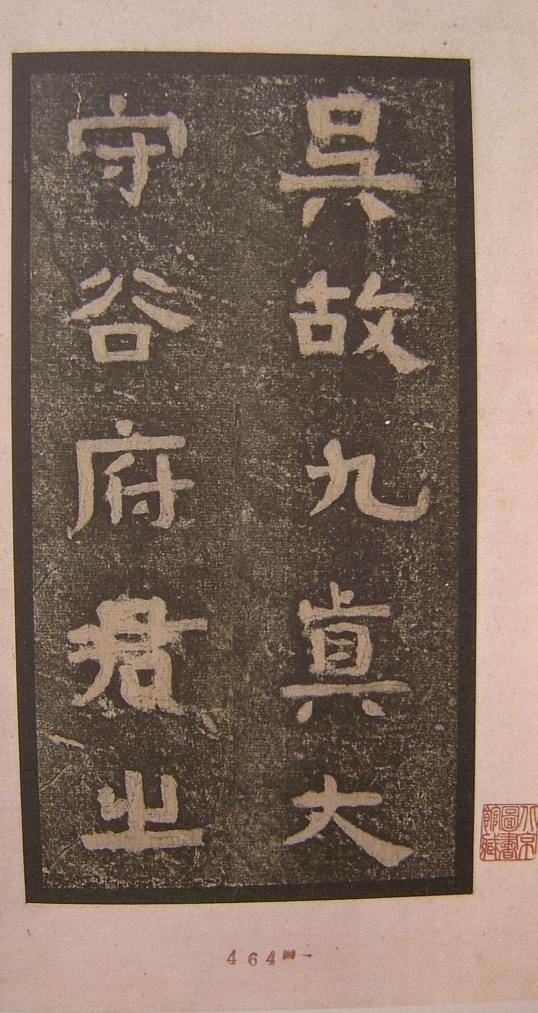 吳故九真大
守谷府君之
北京圖書館藏
464